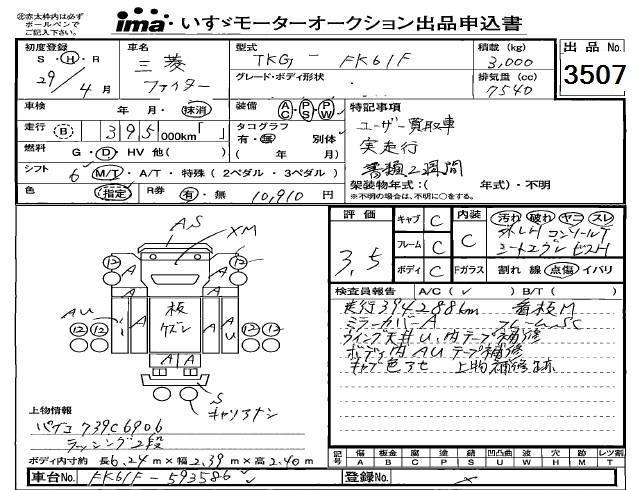 ㊟赤太枠内は必ず
ボールペンで
ご記入下さい。
ima・いすゞモーターオークション出品申込書
初度登録 S・H・R 29年 4月
車名 三菱 ファイター
型式 TKG - FK61F
グレード・ボディ形状
積載 (kg) 3,000
排気量 (cc) 7540
出品No. 3507
車検 年・月・抹消
装備 AC PS PW
特記事項
走行 B 395,000km「 」
タコグラフ 有・無 別体 ( 年 月)
ユーザー買取車
実走行
燃料 G・D・HV 他( )
シフト 6 M/T・A/T・特殊(2ペダル・3ペダル)
看板2週間
架装物年式:( 年式)・不明
※不明の場合は、不明に○をする。
色 指定 R券 有・無 10,910 円
評価 3.5
キャブ C
フレーム C
ボディ C
内装 C
Fガラス
汚れ 破れ ヤニ スレ
コンソール
シートエグレ ビスH
割れ 線 点傷 イバリ
検査員報告 A/C(✓) B/T( )
実行394288km 看板M
ミラーカバーA フレームSC
ウイング天井U、内テープ補修
ボディ内AUテープ補修
キャブ色アセ 上物補修跡
A,S
XM
12 12
A A
A U
板
ケズレ
A A A A
12 12 12 12
A A
S
キャリアナシ
上物情報
パイコ 739C6906
ラッシング2段
ボディ内寸約 長6.24m×幅2.39m×高2.40m
記号 傷 A 板金 B 腐 C 塗 P 錆 S 凹凸曲 U 波 W 穴 H 跡 M レツ割 T
車台No. FK61F-593586
登録No.